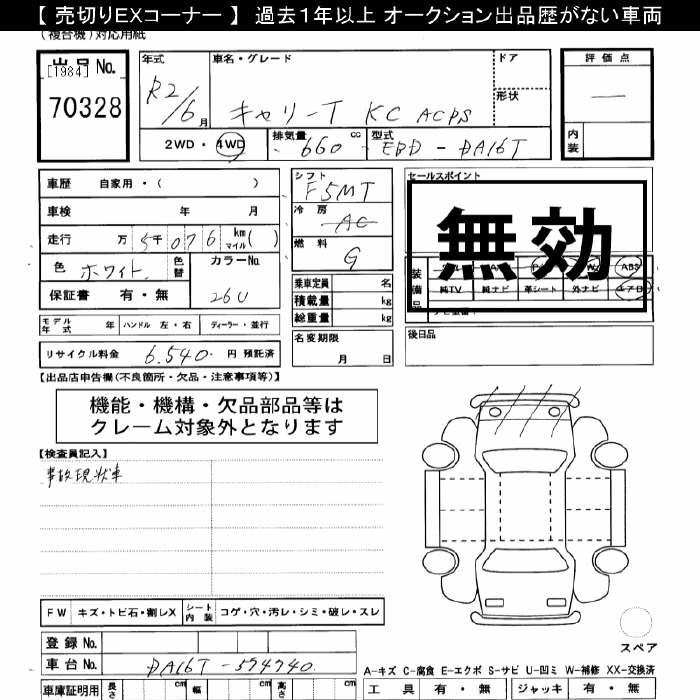 【 売切りEXコーナー 】 過去1年以上 オークション出品歴がない車両
(複合機)対応用紙
出品 No.
[1984]
70328
年式
R2/6月
車名・グレード
キャリーT KC ACPS
ドア
形状
2WD・4WD
排気量 660 cc
型式 EBD-DA16T
評価点
—
内装
車歴 自家用・( )
車検 年 月
走行 万 5千 0 7 6 km マイル ( )
色 ホワイト
色替
カラーNo.
26U
保証書 有・無
モデル年式 年 ハンドル 左・右 ディーラー・並行
リサイクル料金 6,540 円 預託済
シフト
F5MT
冷房
AC
燃料
G
乗車定員 名
積載量 kg
総重量 kg
名変期限
月 日
セールスポイント
無効
装備品
ABS
純TV 純ナビ 革シート 外ナビ エアB
後日品
【出品店申告欄(不良箇所・欠品・注意事項等)】
機能・機構・欠品部品等は
クレーム対象外となります
【検査員記入】
事故現状車
FW キズ・トビ石・割レX シート内装 コゲ・穴・汚レ・シミ・破レ・スレ
登録 No.
車台 No. DA16T-574740
車庫証明用 長さ cm 幅 cm 高さ cm
スペア
A-キズ C-腐食 E-エクボ S-サビ U-凹ミ W-補修 XX-交換済
工具 有・無 ジャッキ 有・無